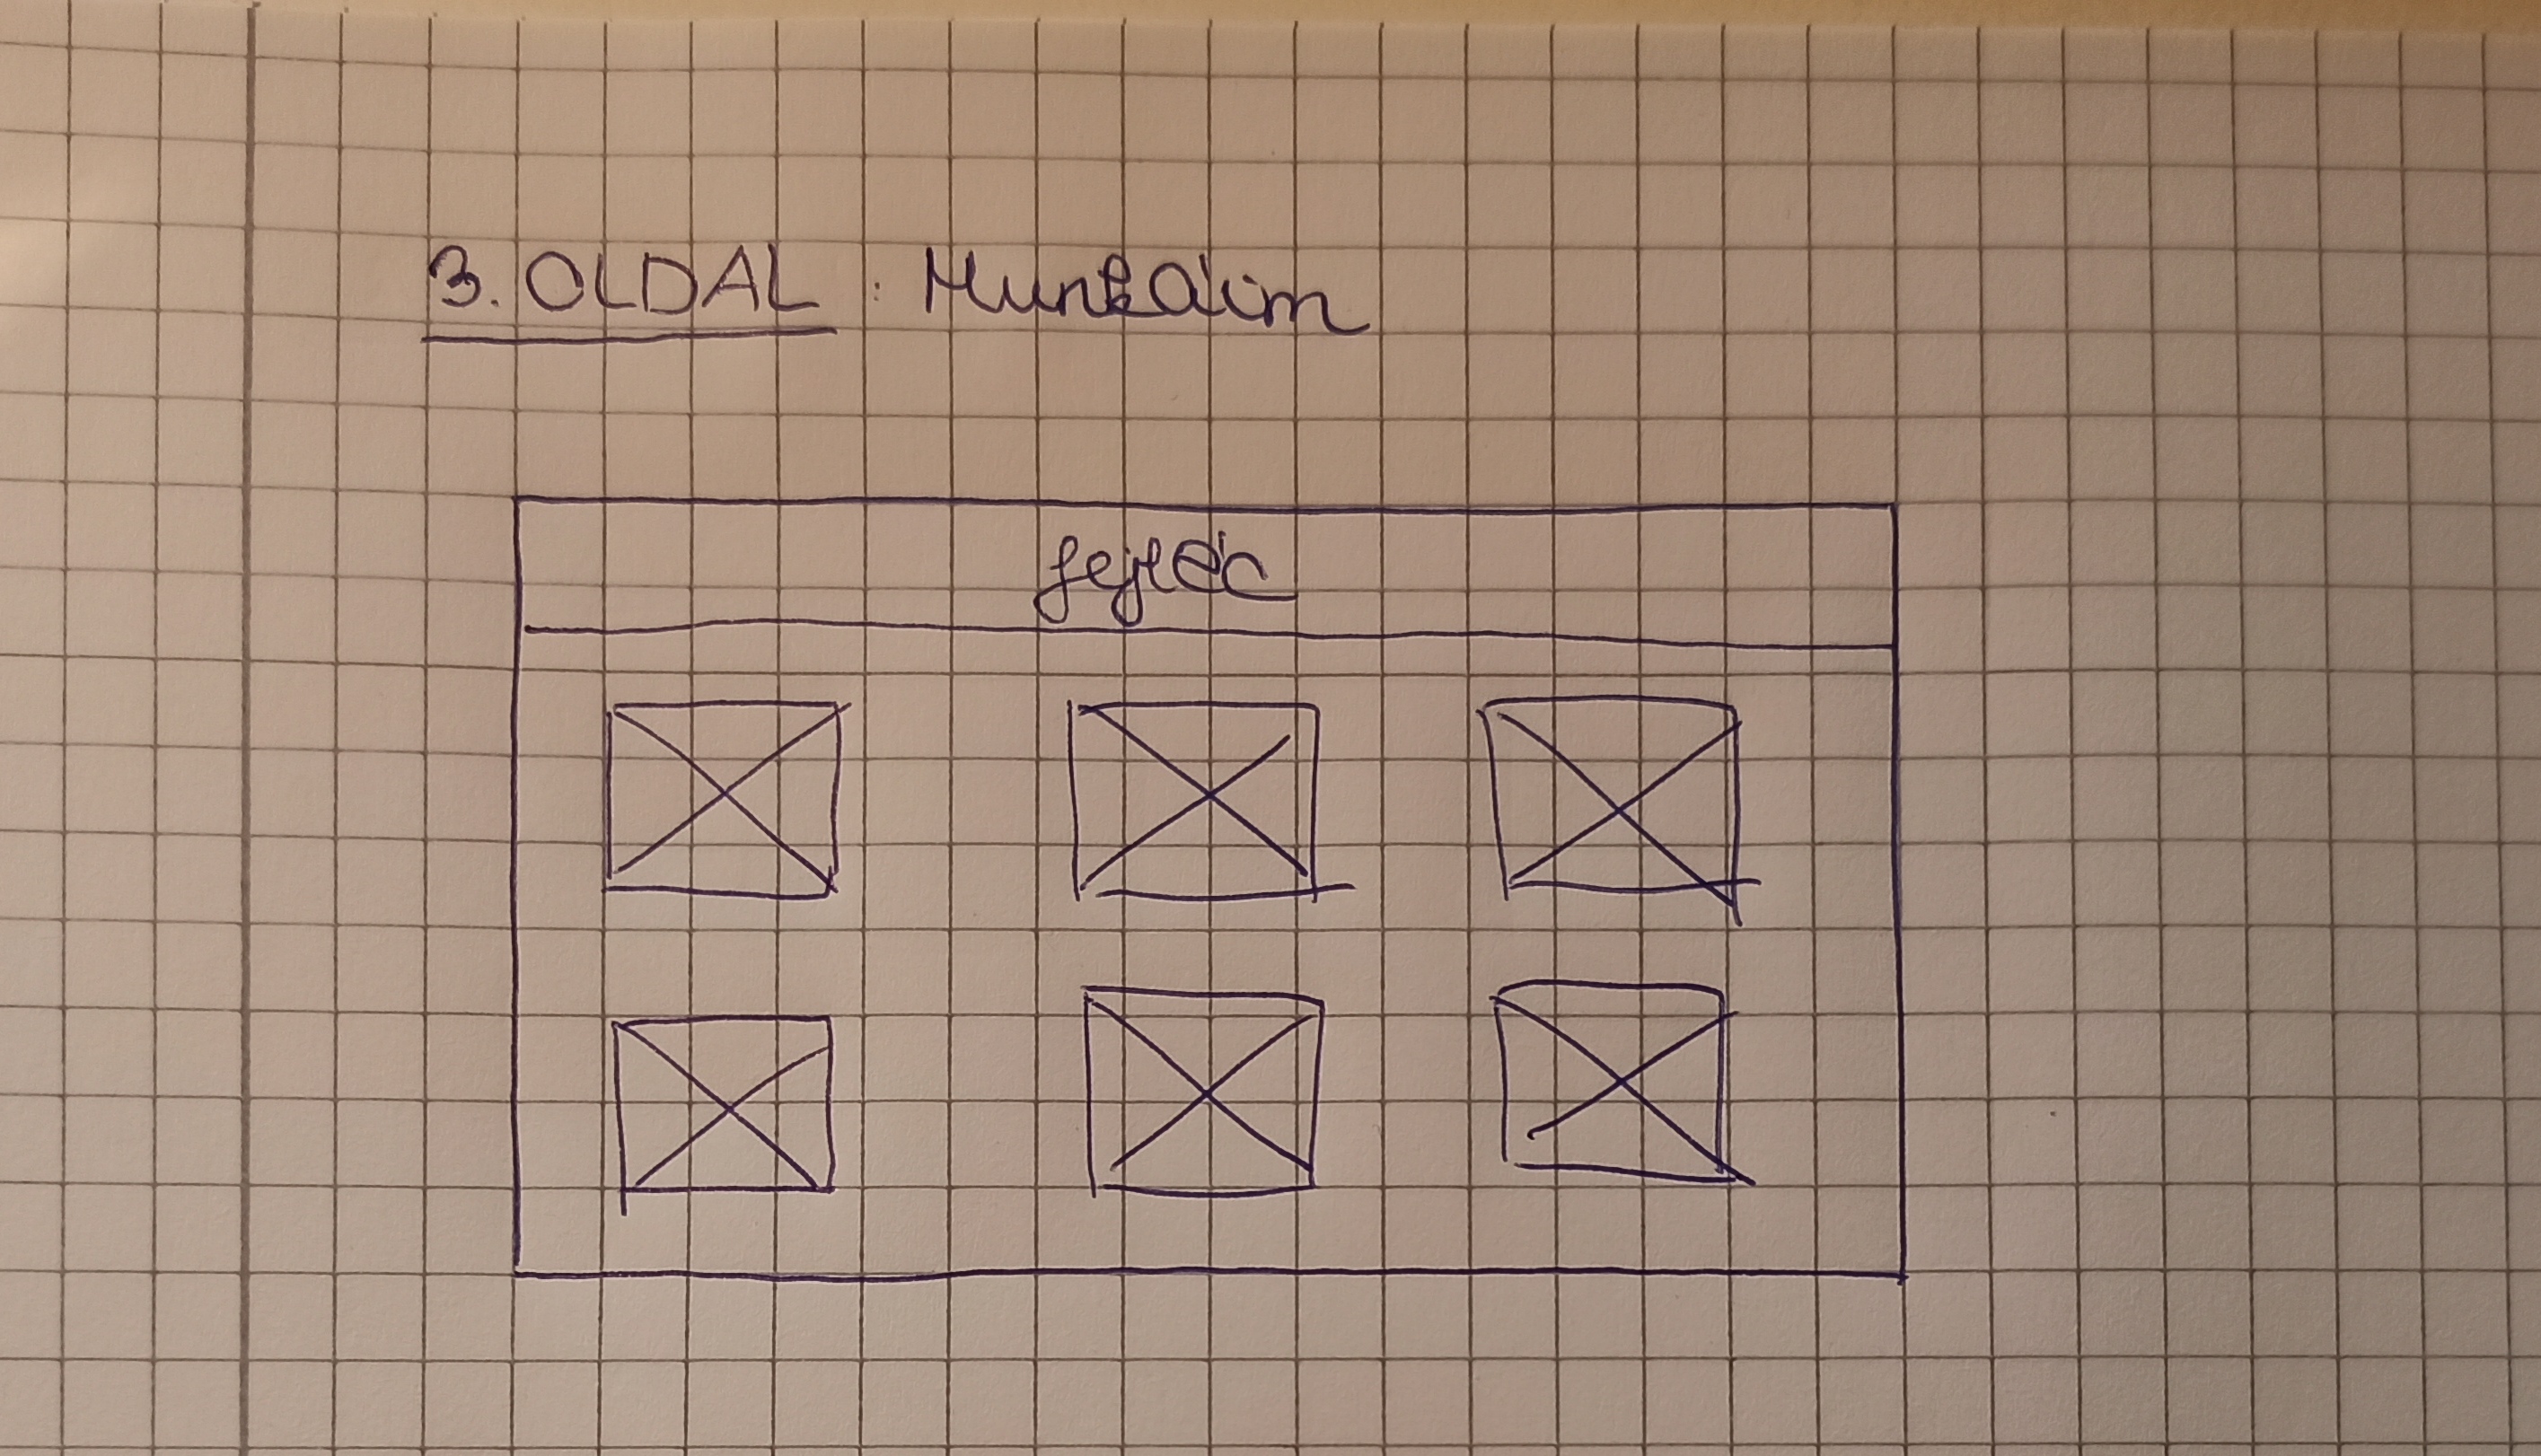 3. OLDAL : Munkáim
fejléc